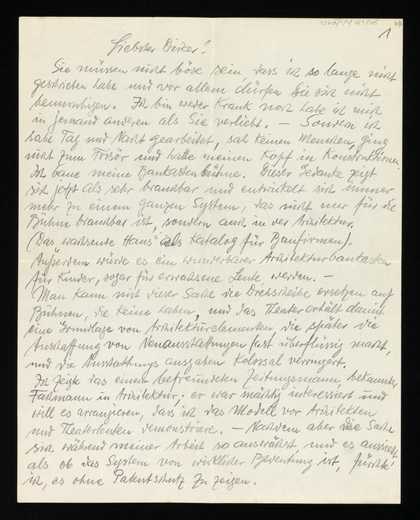 1
Liebster Dicker!
Sie müssen nicht böse sein, dass ich so lange nicht
geschrieben habe und vor allem dürfen Sie sich nicht
beunruhigen. Ich bin weder krank noch habe ich mich
in jemand anderen als Sie verliebt. — Sondern ich
habe Tag und Nacht gearbeitet, sah keinen Menschen, ging
nicht zum Frisör und hatte meinen Kopf in Konstruktionen.
Ich baue meine Baukastenbühne. Dieser Gedanke zeigt
sich jetzt als sehr brauchbar und entwickelt sich immer
mehr zu einem ganzen System, das nicht nur für die
Bühne brauchbar ist, sondern auch in der Architektur.
(Das wachsende Haus als Katalog für Bauformen).
Außerdem würde es ein wunderbarer Architekturbaukasten
für Kinder, sogar für erwachsene Leute werden. —
Man kann mit dieser Sache die Drehscheibe ersetzen auf
Bühnen, die keine haben, und das Theater erhält damit
eine Grundlage von Architekturelementen, die später die
Anschaffung von Neuausstattungen fast überflüssig macht,
und die Ausstattungsausgaben kolossal verringert.
Ich zeigte das einem befreundeten Zeitungsmann, bekannter
Fachmann in Architektur, er war mächtig interessiert und
will es arrangieren, dass ich das Modell vor Architekten
und Theaterleuten demonstriere. — Nachdem aber die Sache
sich während meiner Arbeit so auswächst, und es aussieht
als ob das System von wirklicher Bedeutung ist, fürchte
ich, es ohne Patentschutz zu zeigen.